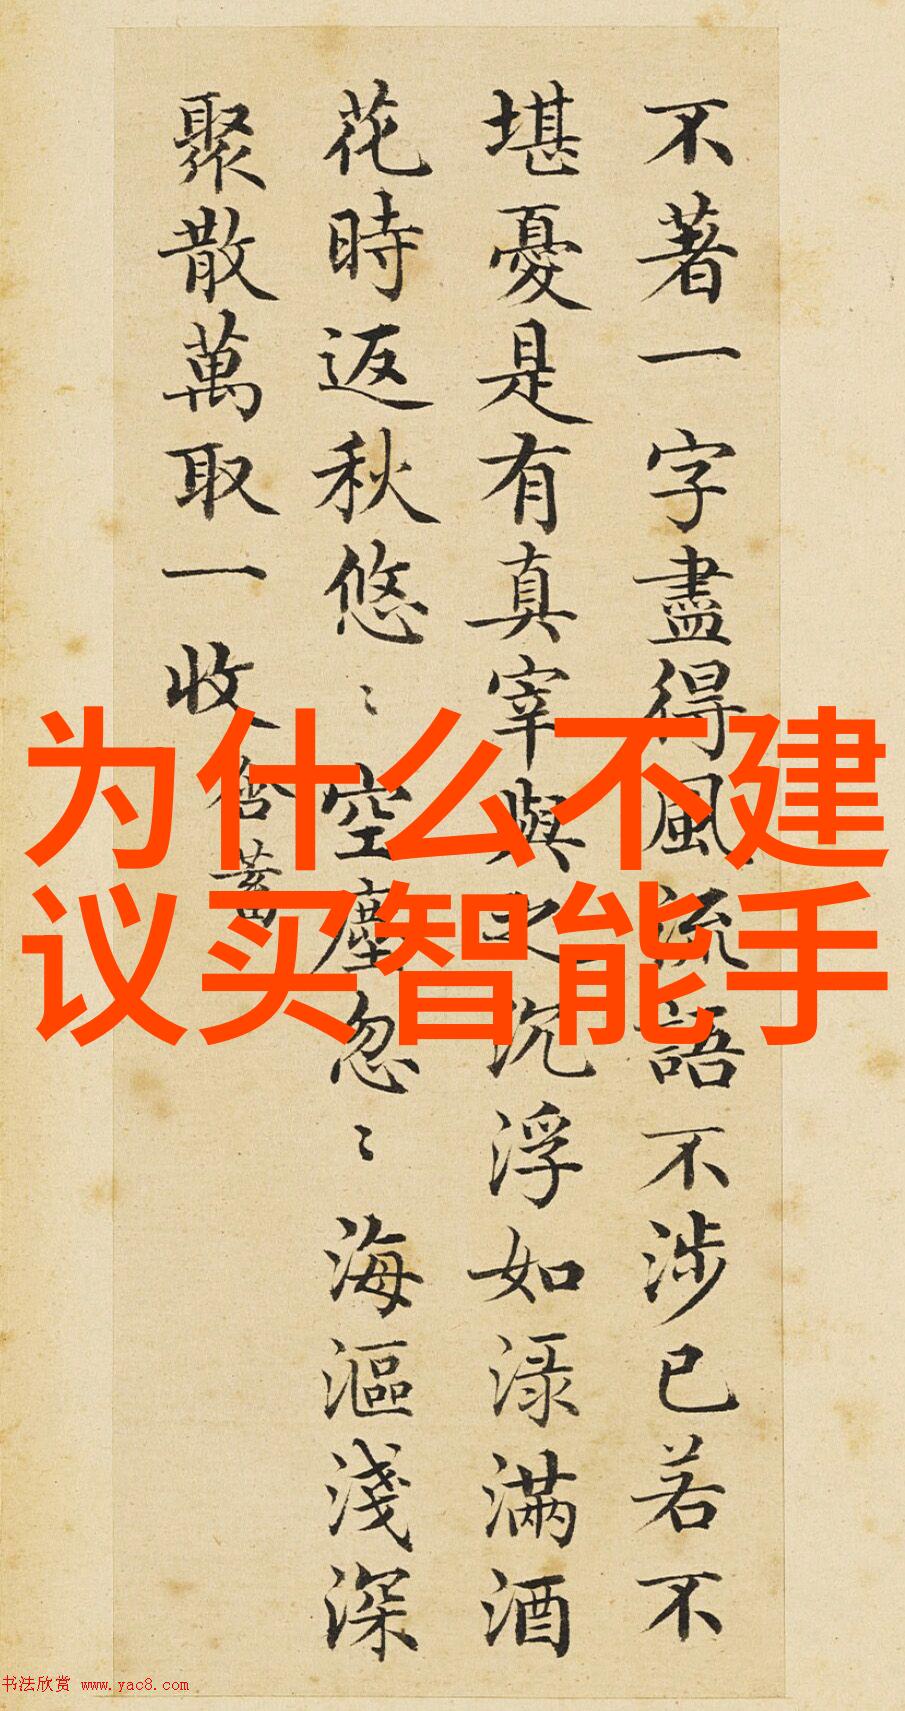 不著一字盡得風流語不涉已若不
堪憂是有真宰與之沉浮如渌滿酒
花時返秋悠〻空塵忽〻海漚淺深
聚散萬取一收含蓄
为什么不建
议买智能手
书法欣赏 www.yac8.com